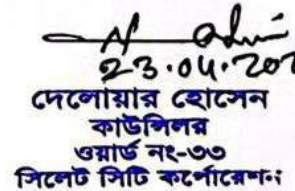 23.04.202
দেলোয়ার হোসেন
কাউন্সিলর
ওয়ার্ড নং-৩৩
সিলেট সিটি কর্পোরেশন।